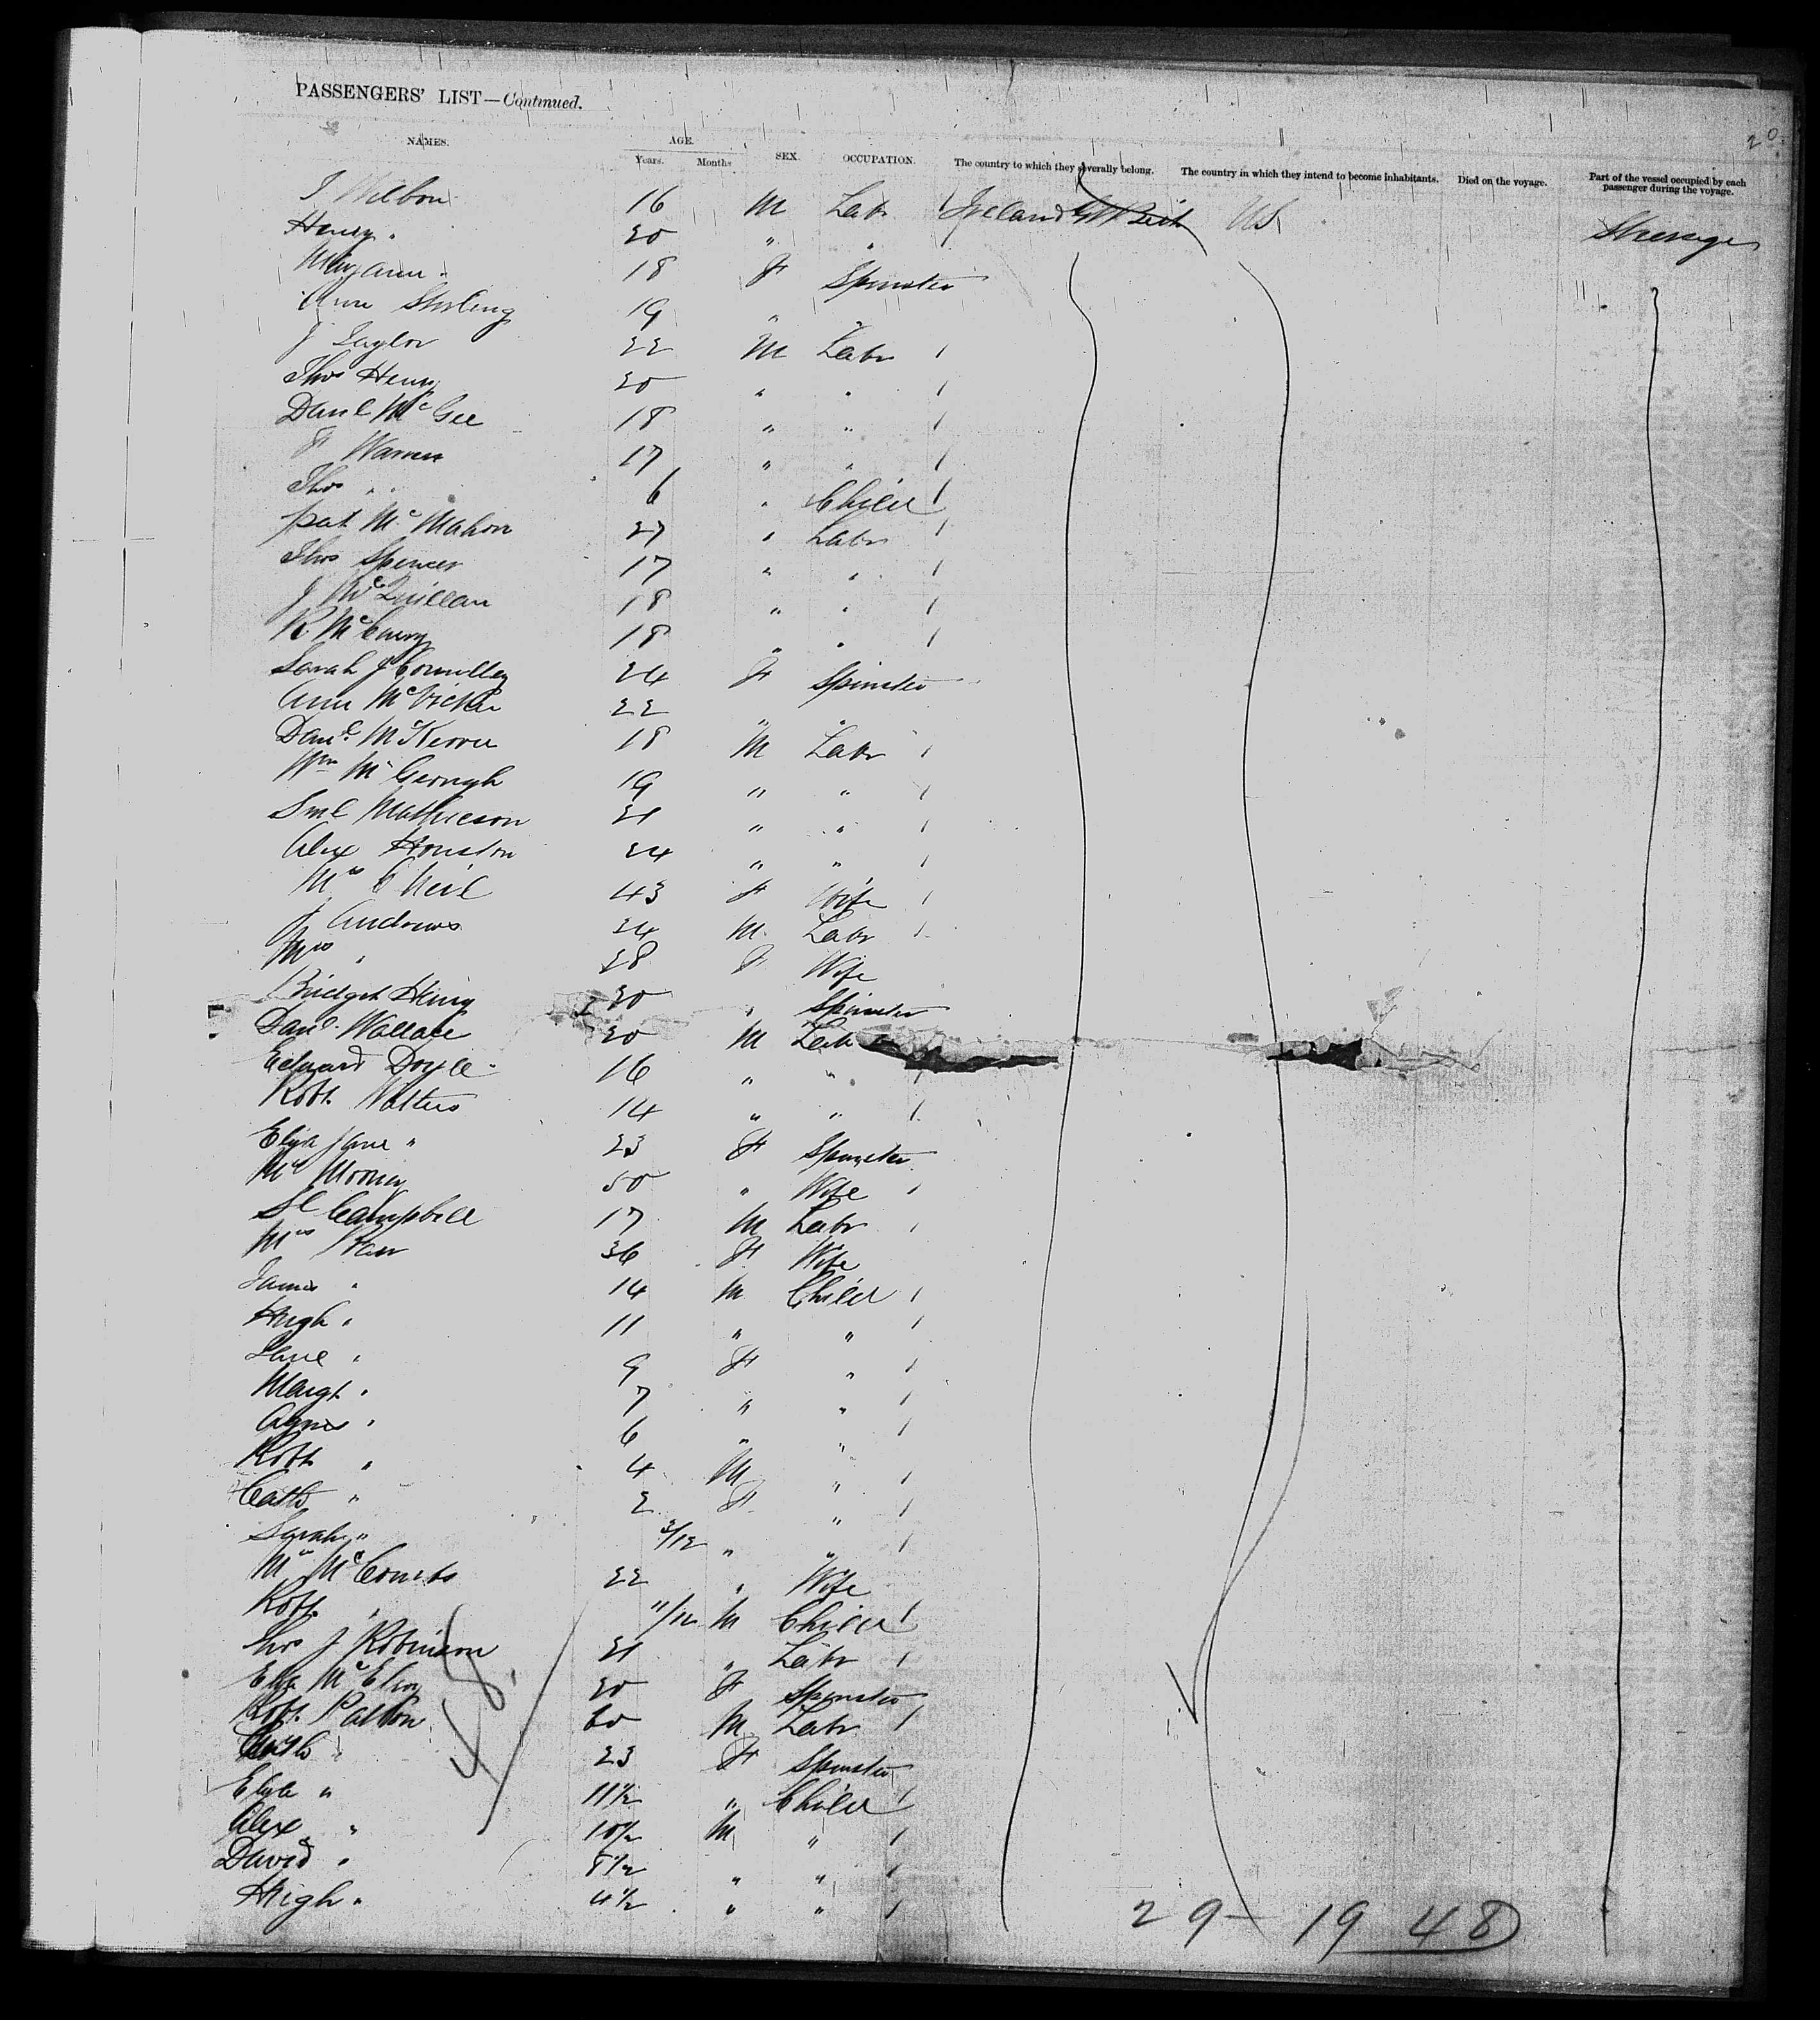 PASSENGERS' LIST—Continued.
20
NAMES. AGE. Years. Months SEX. OCCUPATION. The country to which they severally belong. The country in which they intend to become inhabitants. Died on the voyage. Part of the vessel occupied by each passenger during the voyage.
J Wilson 16 M Labr Ireland Gt Brit US Steerage
Henry " 20 " "
Mary Ann " 18 F Spinster
Ann Stirling 19 " "
J Taylor 22 M Labr
Thos Henry 20 " "
Danl McGee 18 " "
F Warren 17 " "
Thos " 6 " Child
Pat McMahon 27 " Labr
Thos Spencer 17 " "
J McQuillan 18 " "
R. McCurry 18 " "
Sarah J Connolley 24 F Spinster
Ann McVicker 22 " "
Danl McKerra 18 M Labr
Wm McGeough 19 " "
Sml Mathieson 21 " "
Alex Houston 24 " "
Mrs O Neil 43 F Wife
J Andrews 24 M Labr
Mrs " 28 F Wife
Bridget Henry 20 " Spinster
Danl Wallace 20 M Labr
Edward Doyle 16 " "
Robt Watters 14 " "
Eliza Jane " 23 F Spinster
Mrs Mooney 50 " Wife
Sl Campbell 17 M Labr
Mrs 36 F Wife
James " 14 M Child
Hugh " 11 " "
Jane " 9 F "
Margt " 7 " "
Agnes " 6 " "
Robt " 4 M "
Cath " 2 F "
Sarah " 3/12 " "
Mrs McCombs 22 " Wife
Robt " 11/12 M Child
Thos J Robinson 21 " Labr
Eliza McElroy 20 F Spinster
Robt Patton 60 M Labr
Cath " 23 F Spinster
Eliza " 11½ " Child
Alex " 10½ M "
David " 8½ " "
Hugh " 4½ " "
48
29 - 19 48